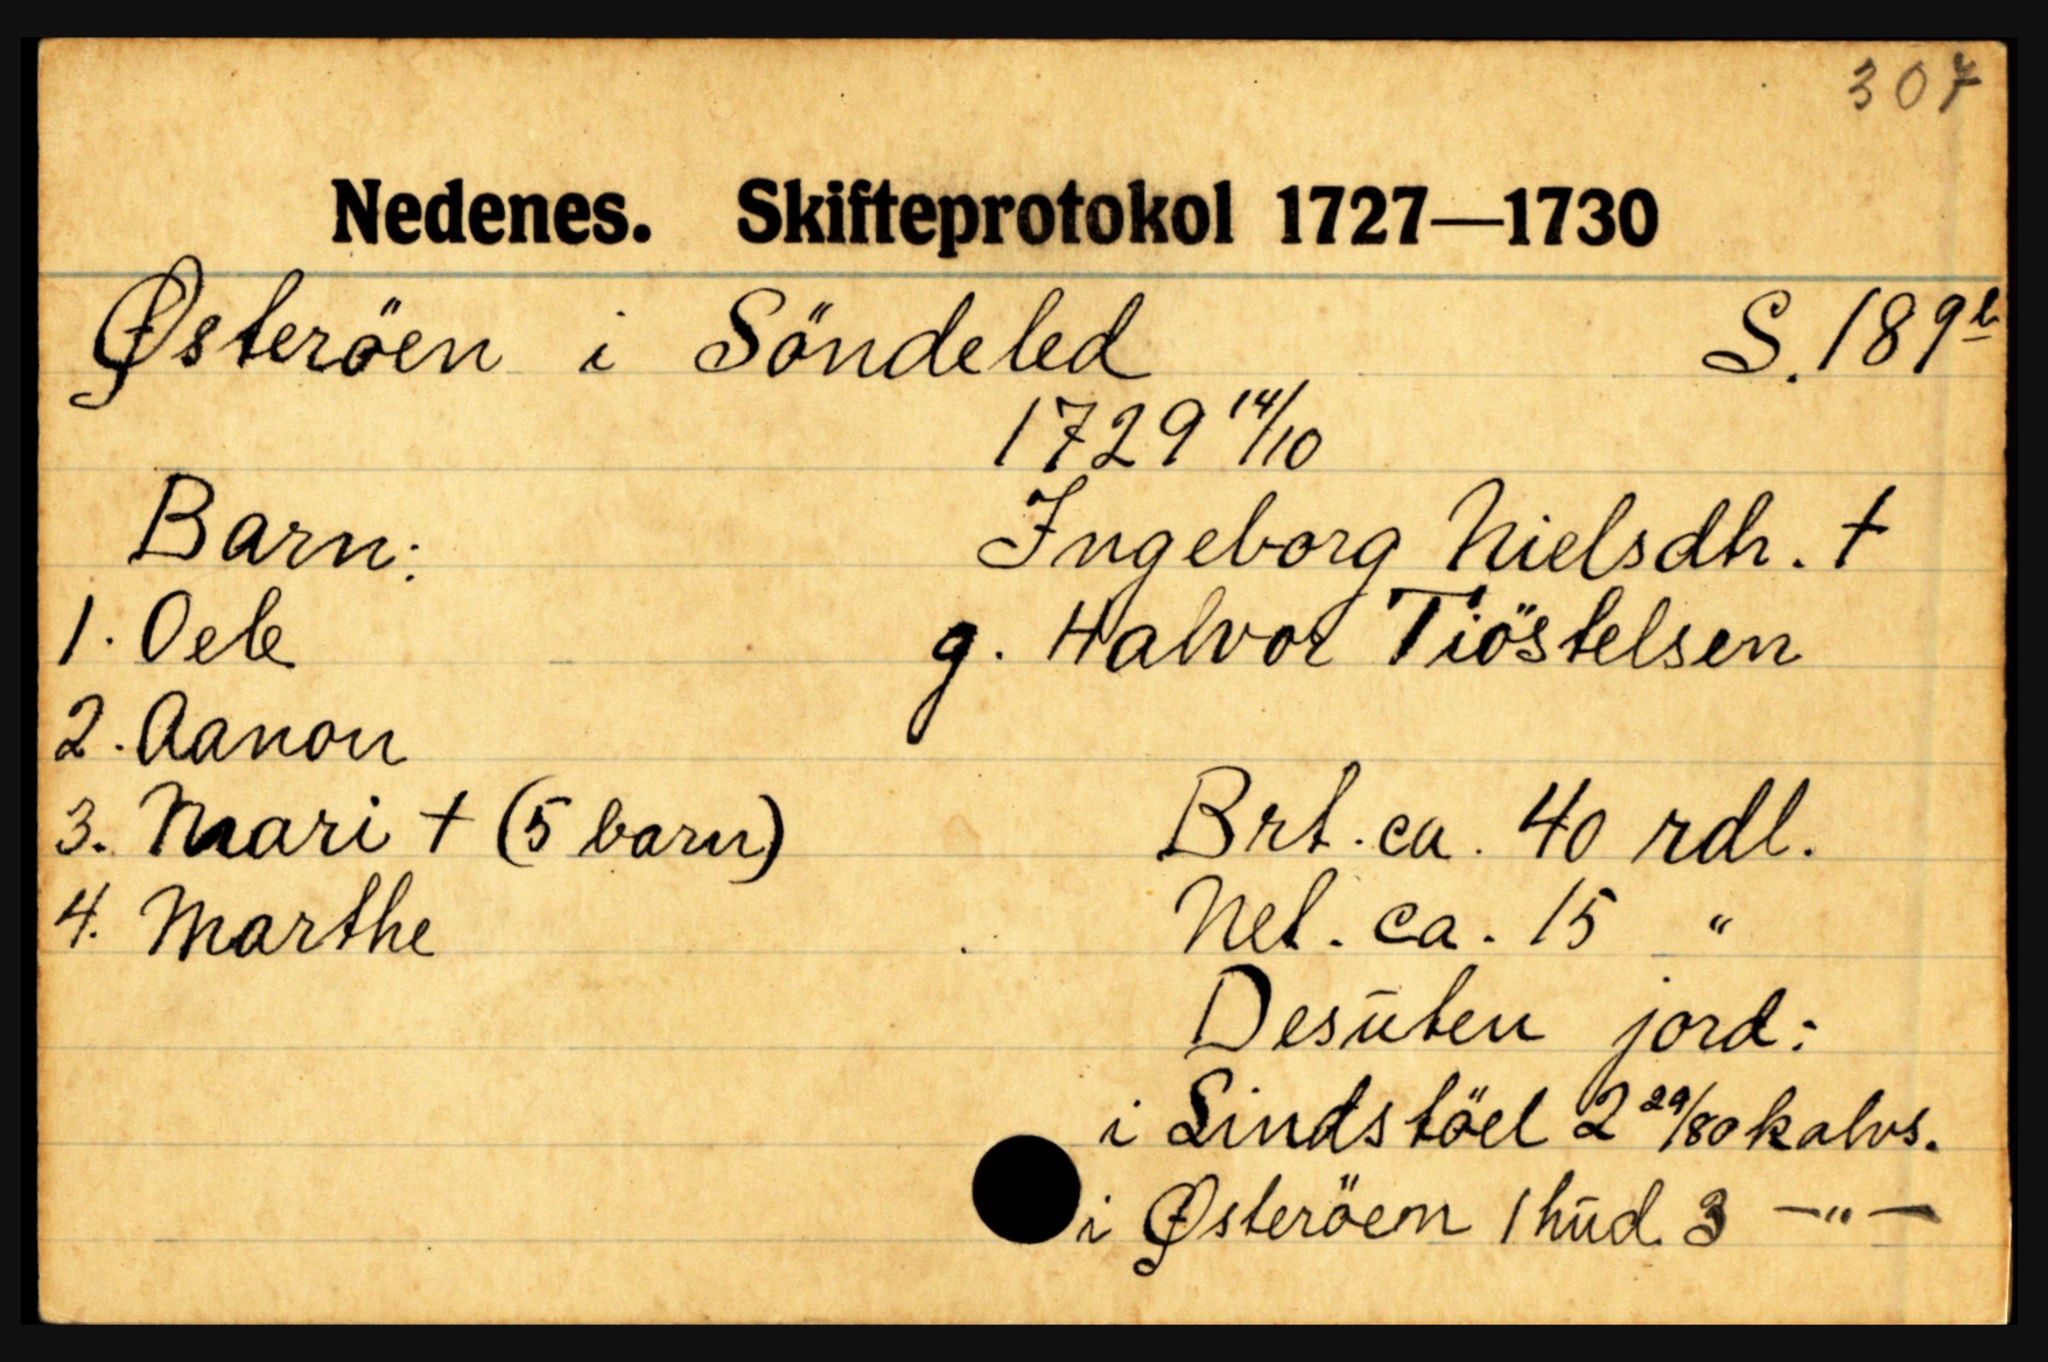 307
Nedenes. Skifteprotokol 1727—1730
Østeröen i Söndeled S. 189b
1729 14/10
Barn: Ingeborg Nielsdh. †
1. Oele g. Halvor Tiöstelsen
2. Aanon
3. Mari † (5 barn) Brt. ca. 40 rdl.
4. Marthe Net. ca. 15 "
Desūten jord:
i Lindstöel 2 29/80 kalvs.
i Østeröen 1 hūd 3 —"—